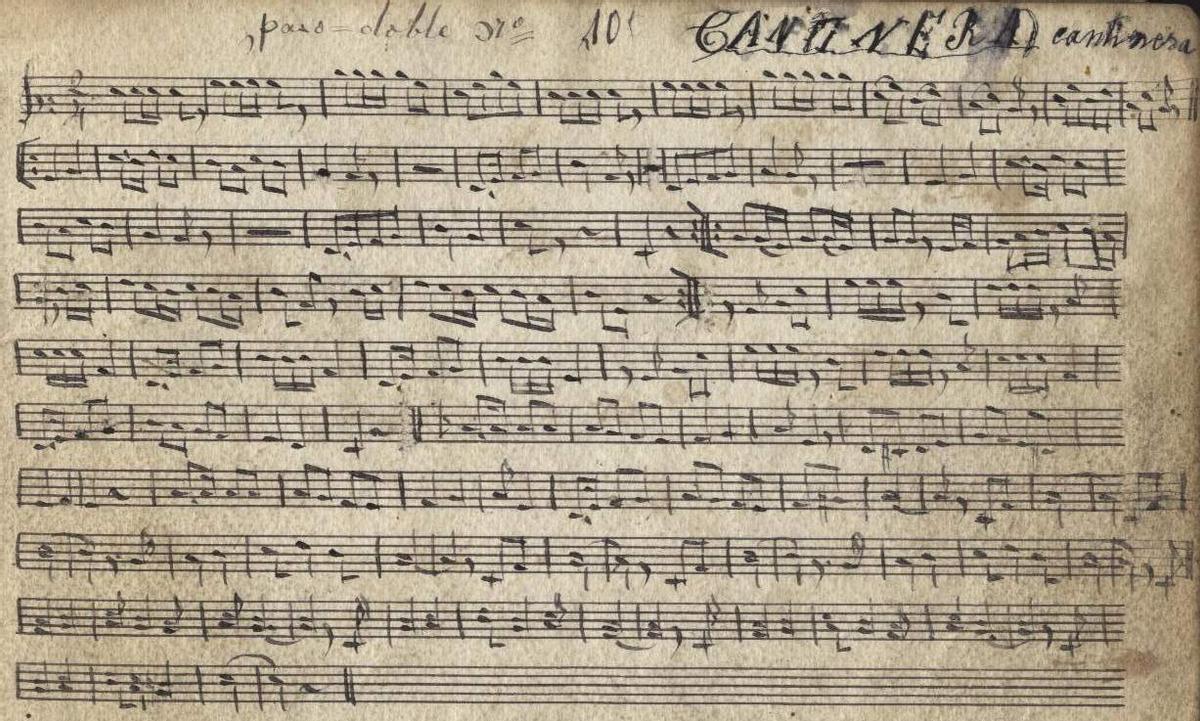 paso=doble nº 10 CANTINERA cantinera